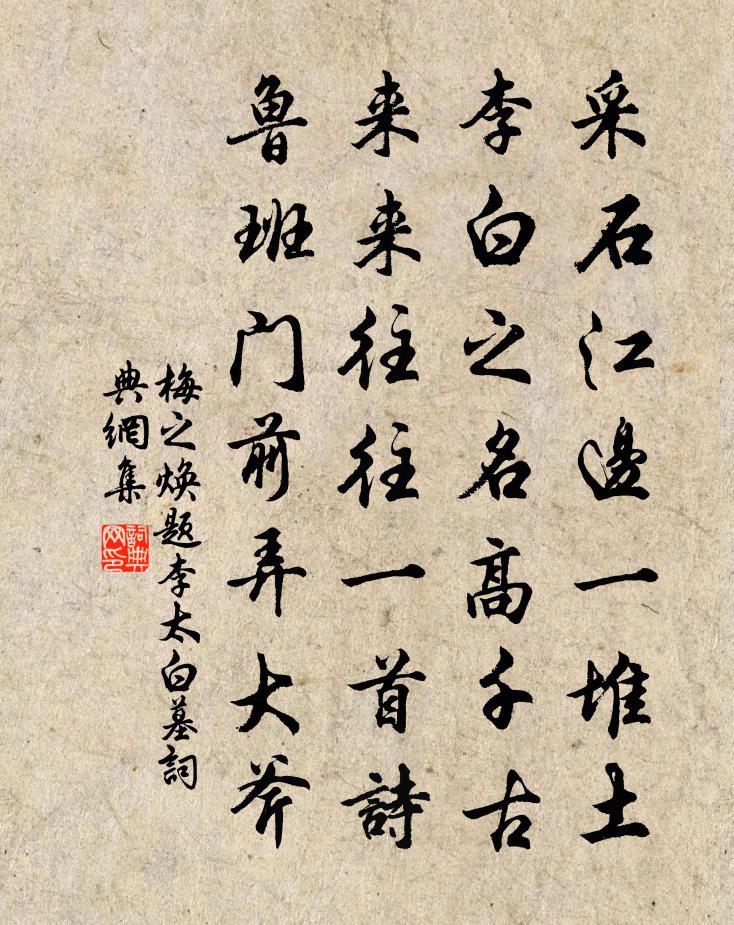 采石江邊一堆土
李白之名高千古
来来往往一首詩
魯班门前弄大斧
梅之焕题李太白墓詞
典網集
詞典网印